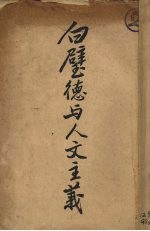 白璧德与人文主義